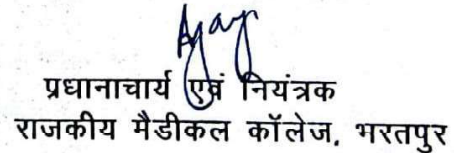 Ajay
प्रधानाचार्य एवं नियंत्रक
राजकीय मैडीकल कॉलेज, भरतपुर